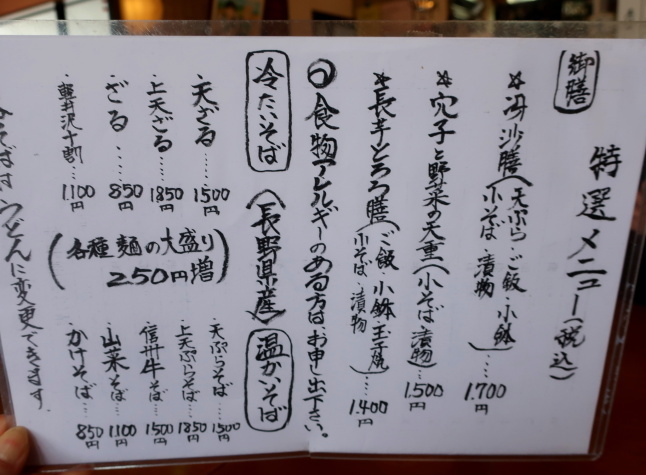 特選メニュー(税込)
御膳
*冴沙膳(天ぷら・ご飯・小鉢
小そば・漬物)……1.700円
*穴子と野菜の天重(小そば・漬物)……1.500円
*長芋とろろ膳(ご飯・小鉢・玉子焼
小そば・漬物)……1.400円
○食物アレルギーのある方はお申し出下さい。
冷たいそば
(長野県産)
温かいそば
・天ざる……1500円
・上天ざる……1850円
・ざる……850円
・軽井沢十割…1.100円
(各種麺の大盛り
250円増)
・天ぷらそば…1500円
・上天ぷらそば…1850円
・信州牛そば…1500円
・山菜そば…1100円
・かけそば…850円
そばは、うどんに変更できます。